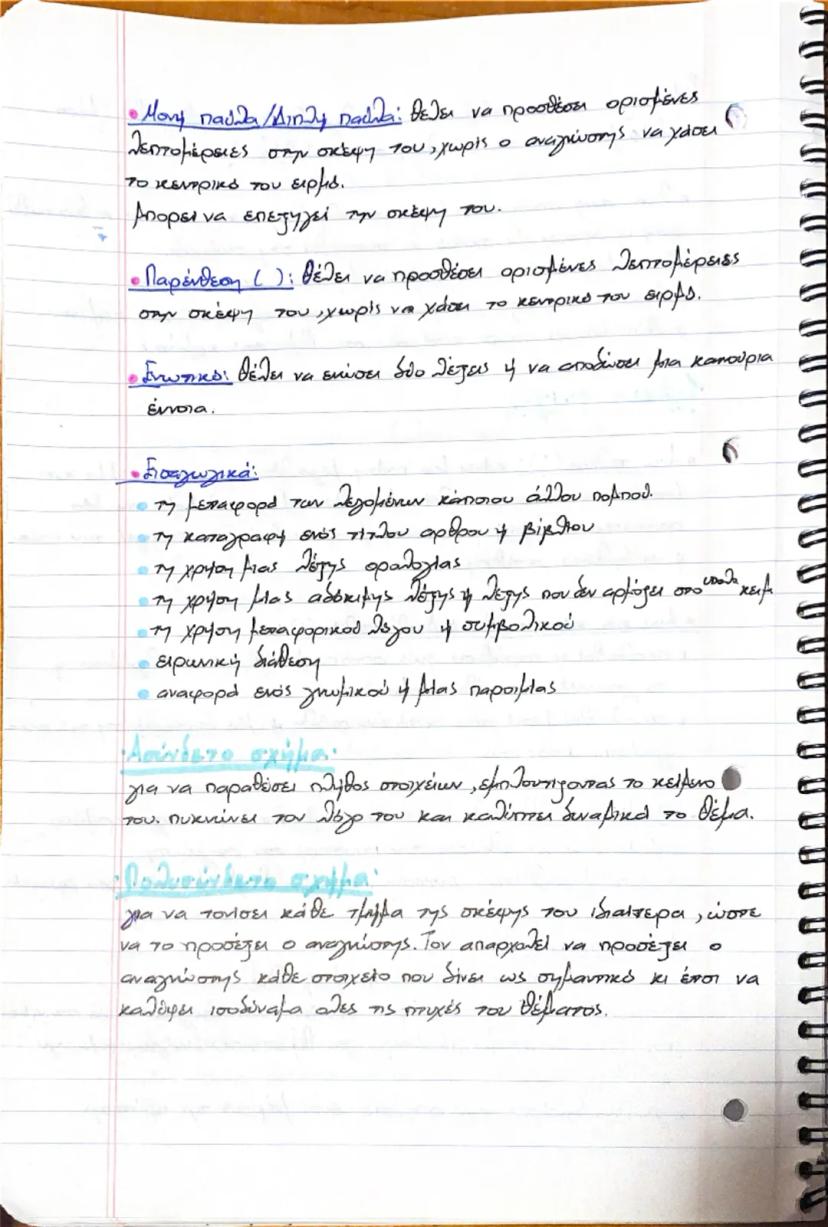 • Μονή παύλα/Διπλή παύλα: θέλει να προσθέσει ορισμένες
λεπτομέρειες στην σκέψη του, χωρίς ο αναγνώστης να χάσει
το κεντρικό του ειρμό.
Μπορεί να επεξηγεί την σκέψη του.
• Παρένθεση ( ): θέλει να προσθέσει ορισμένες λεπτομέρειες
στην σκέψη του, χωρίς να χάσει το κεντρικό του ειρμό.
• Ενωτικό: θέλει να ενώσει δύο λέξεις ή να αποδώσει μια καινούρια
έννοια.
• Εισαγωγικά:
• τη μεταφορά των λεγομένων κάποιου άλλου πομπού.
• τη καταγραφή ενός τίτλου άρθρου ή βιβλίου
• τη χρήση μιας λέξης ορολογίας
• τη χρήση μιας αδόκιμης λέξης ή λέξης που δεν αρμόζει στο υπολ. κειμ
• τη χρήση μεταφορικού λόγου ή συμβολικού
• ειρωνική διάθεση
• αναφορά ενός γνωμικού ή μιας παροιμίας
·Ασύνδετο σχήμα·
για να παραθέσει πλήθος στοιχείων, εμπλουτίζοντας το κείμενο
του. πυκνώνει τον λόγο του και καλύπτει δυναμικά το θέμα.
·Πολυσύνδετο σχήμα·
για να τονίσει κάθε τμήμα της σκέψης του ιδιαίτερα, ώστε
να το προσέξει ο αναγνώστης. Τον απασχολεί να προσέξει ο
αναγνώστης κάθε στοιχείο που δίνει ως σημαντικό κι έτσι να
καλύψει ισοδύναμα όλες τις πτυχές του θέματος.